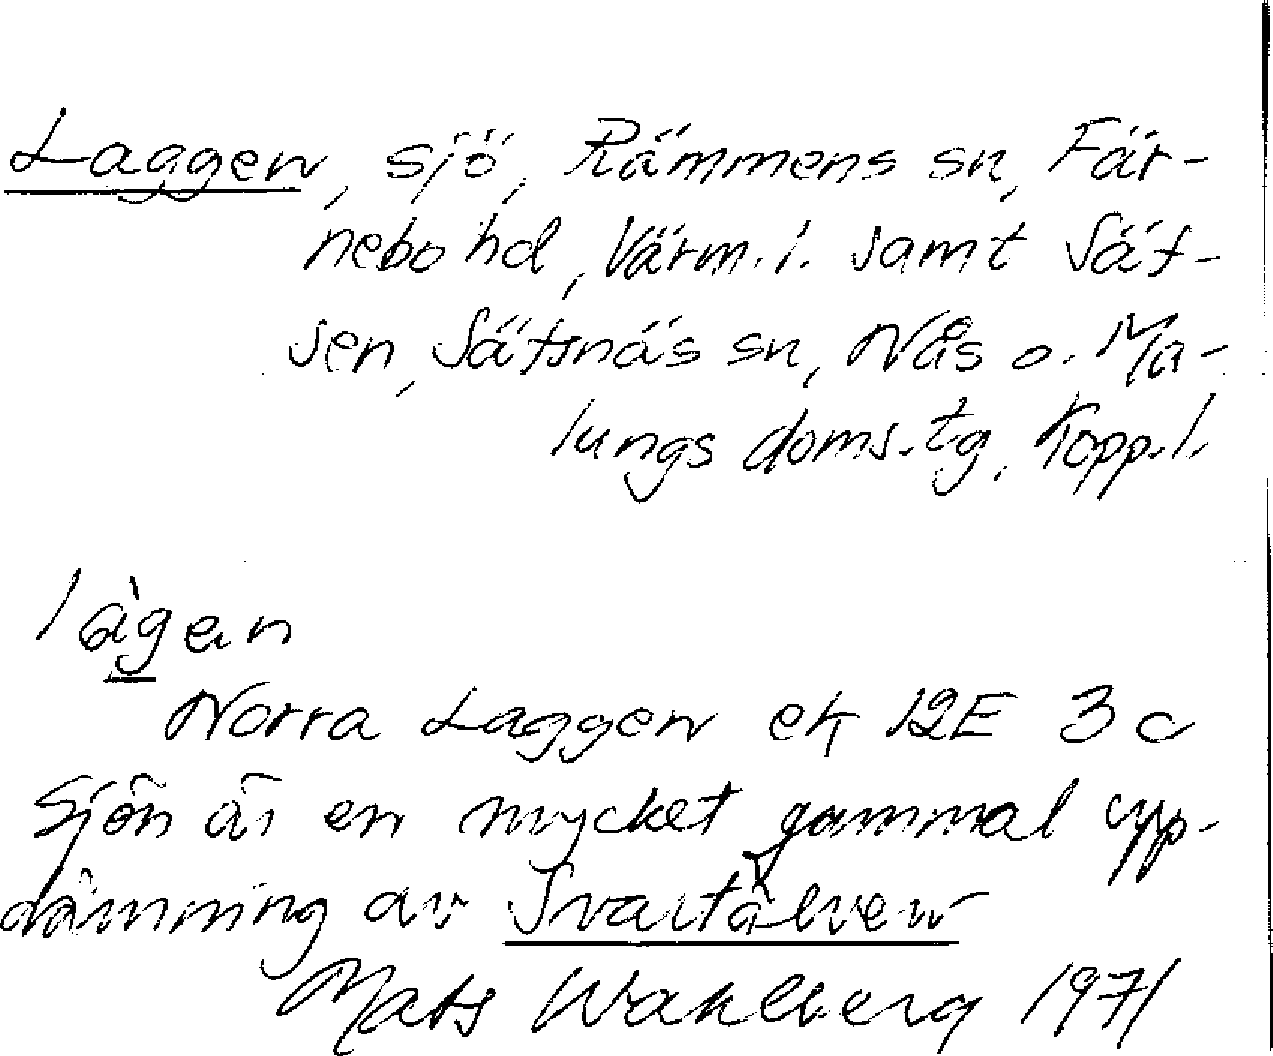 Laggen, sjö, Rämmens sn, Fär-
nebo hd, Värml. l. samt Säf-
sen, Säfsnäs sn, Nås o. Ma-
lungs doms.tg, Kopp.l.
làgan
Norra Laggen ek 12E 3c
Sjön är en mycket gammal upp-
dämning av Svartälven
Mats Wahlberg 1971